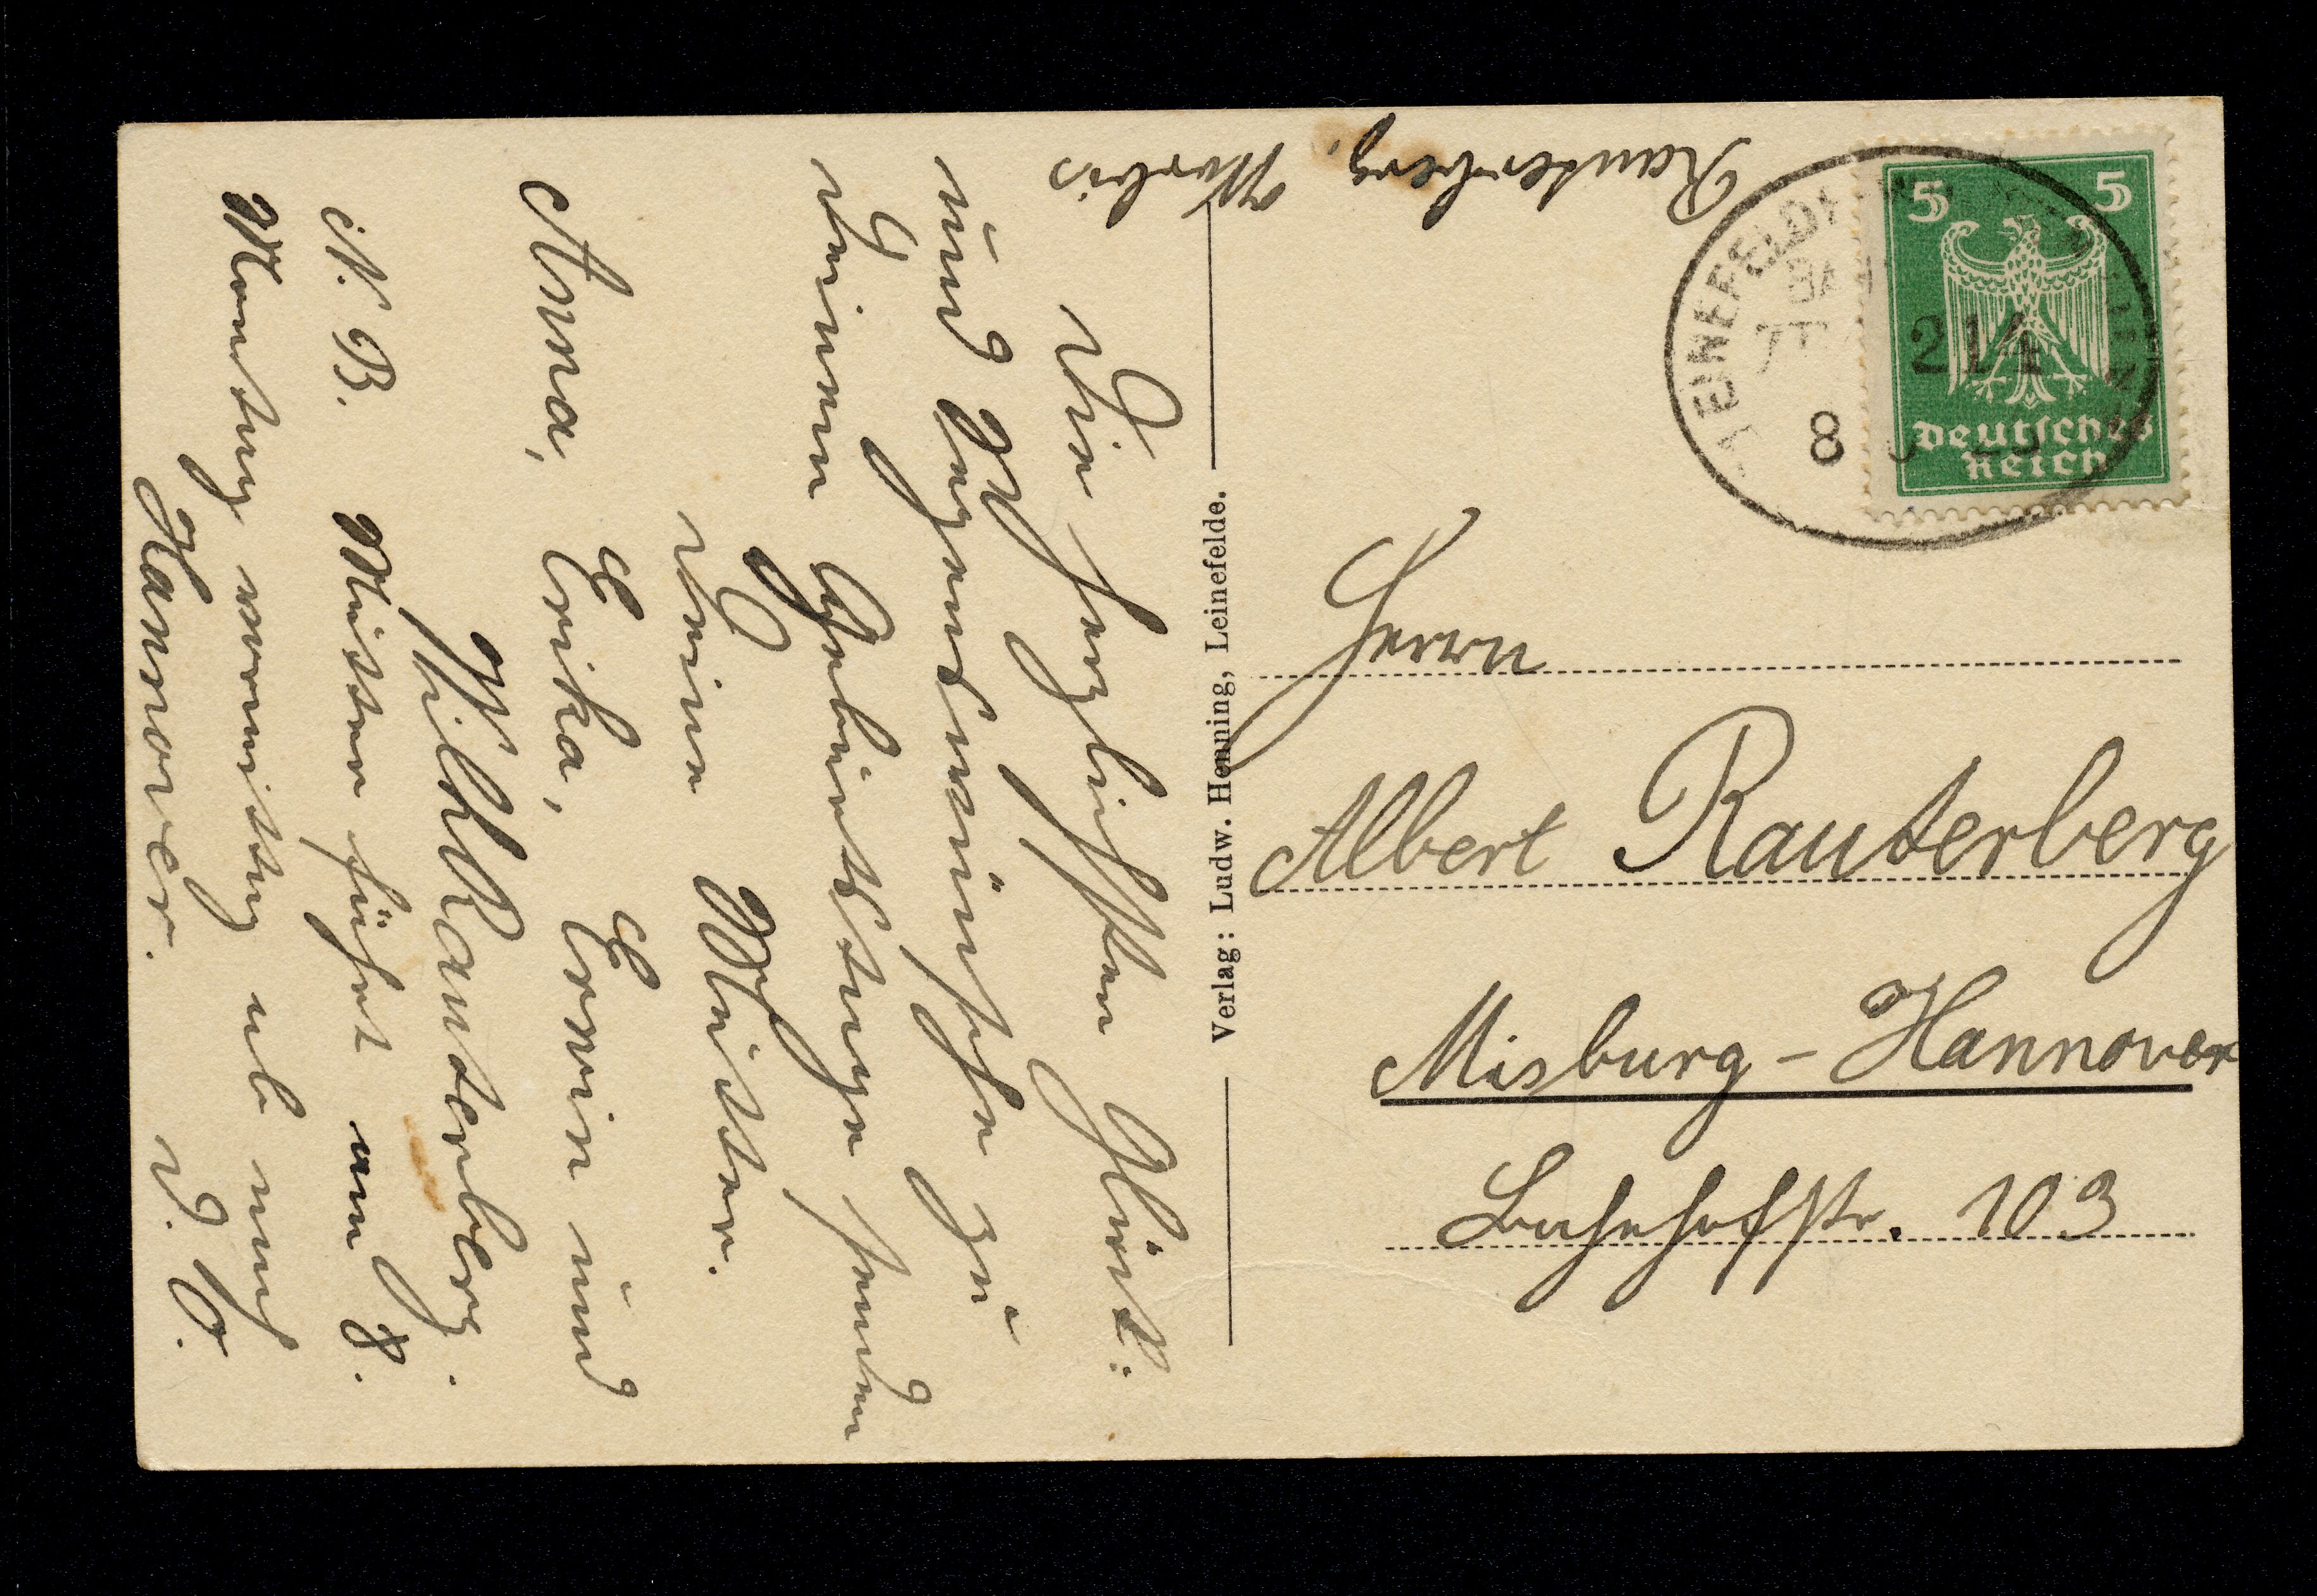 Die herzlichsten Glück-
und Segenswünsche zu
deinem Geburtstage senden
deine Mutter.
Anna, Erika, Erwin und
Wilh Rauterberg.
N. B. Mutter fährt am 8.
Montag vormittag ab nach
Hannover. D. O.
Rauterberg, Worbis
Verlag: Ludw. Henning, Leinefelde.
5 5
Deutsches
Reich
214
8
Herrn
Albert Rauterberg
Misburg - Hannover
Bahnhofstr. 103